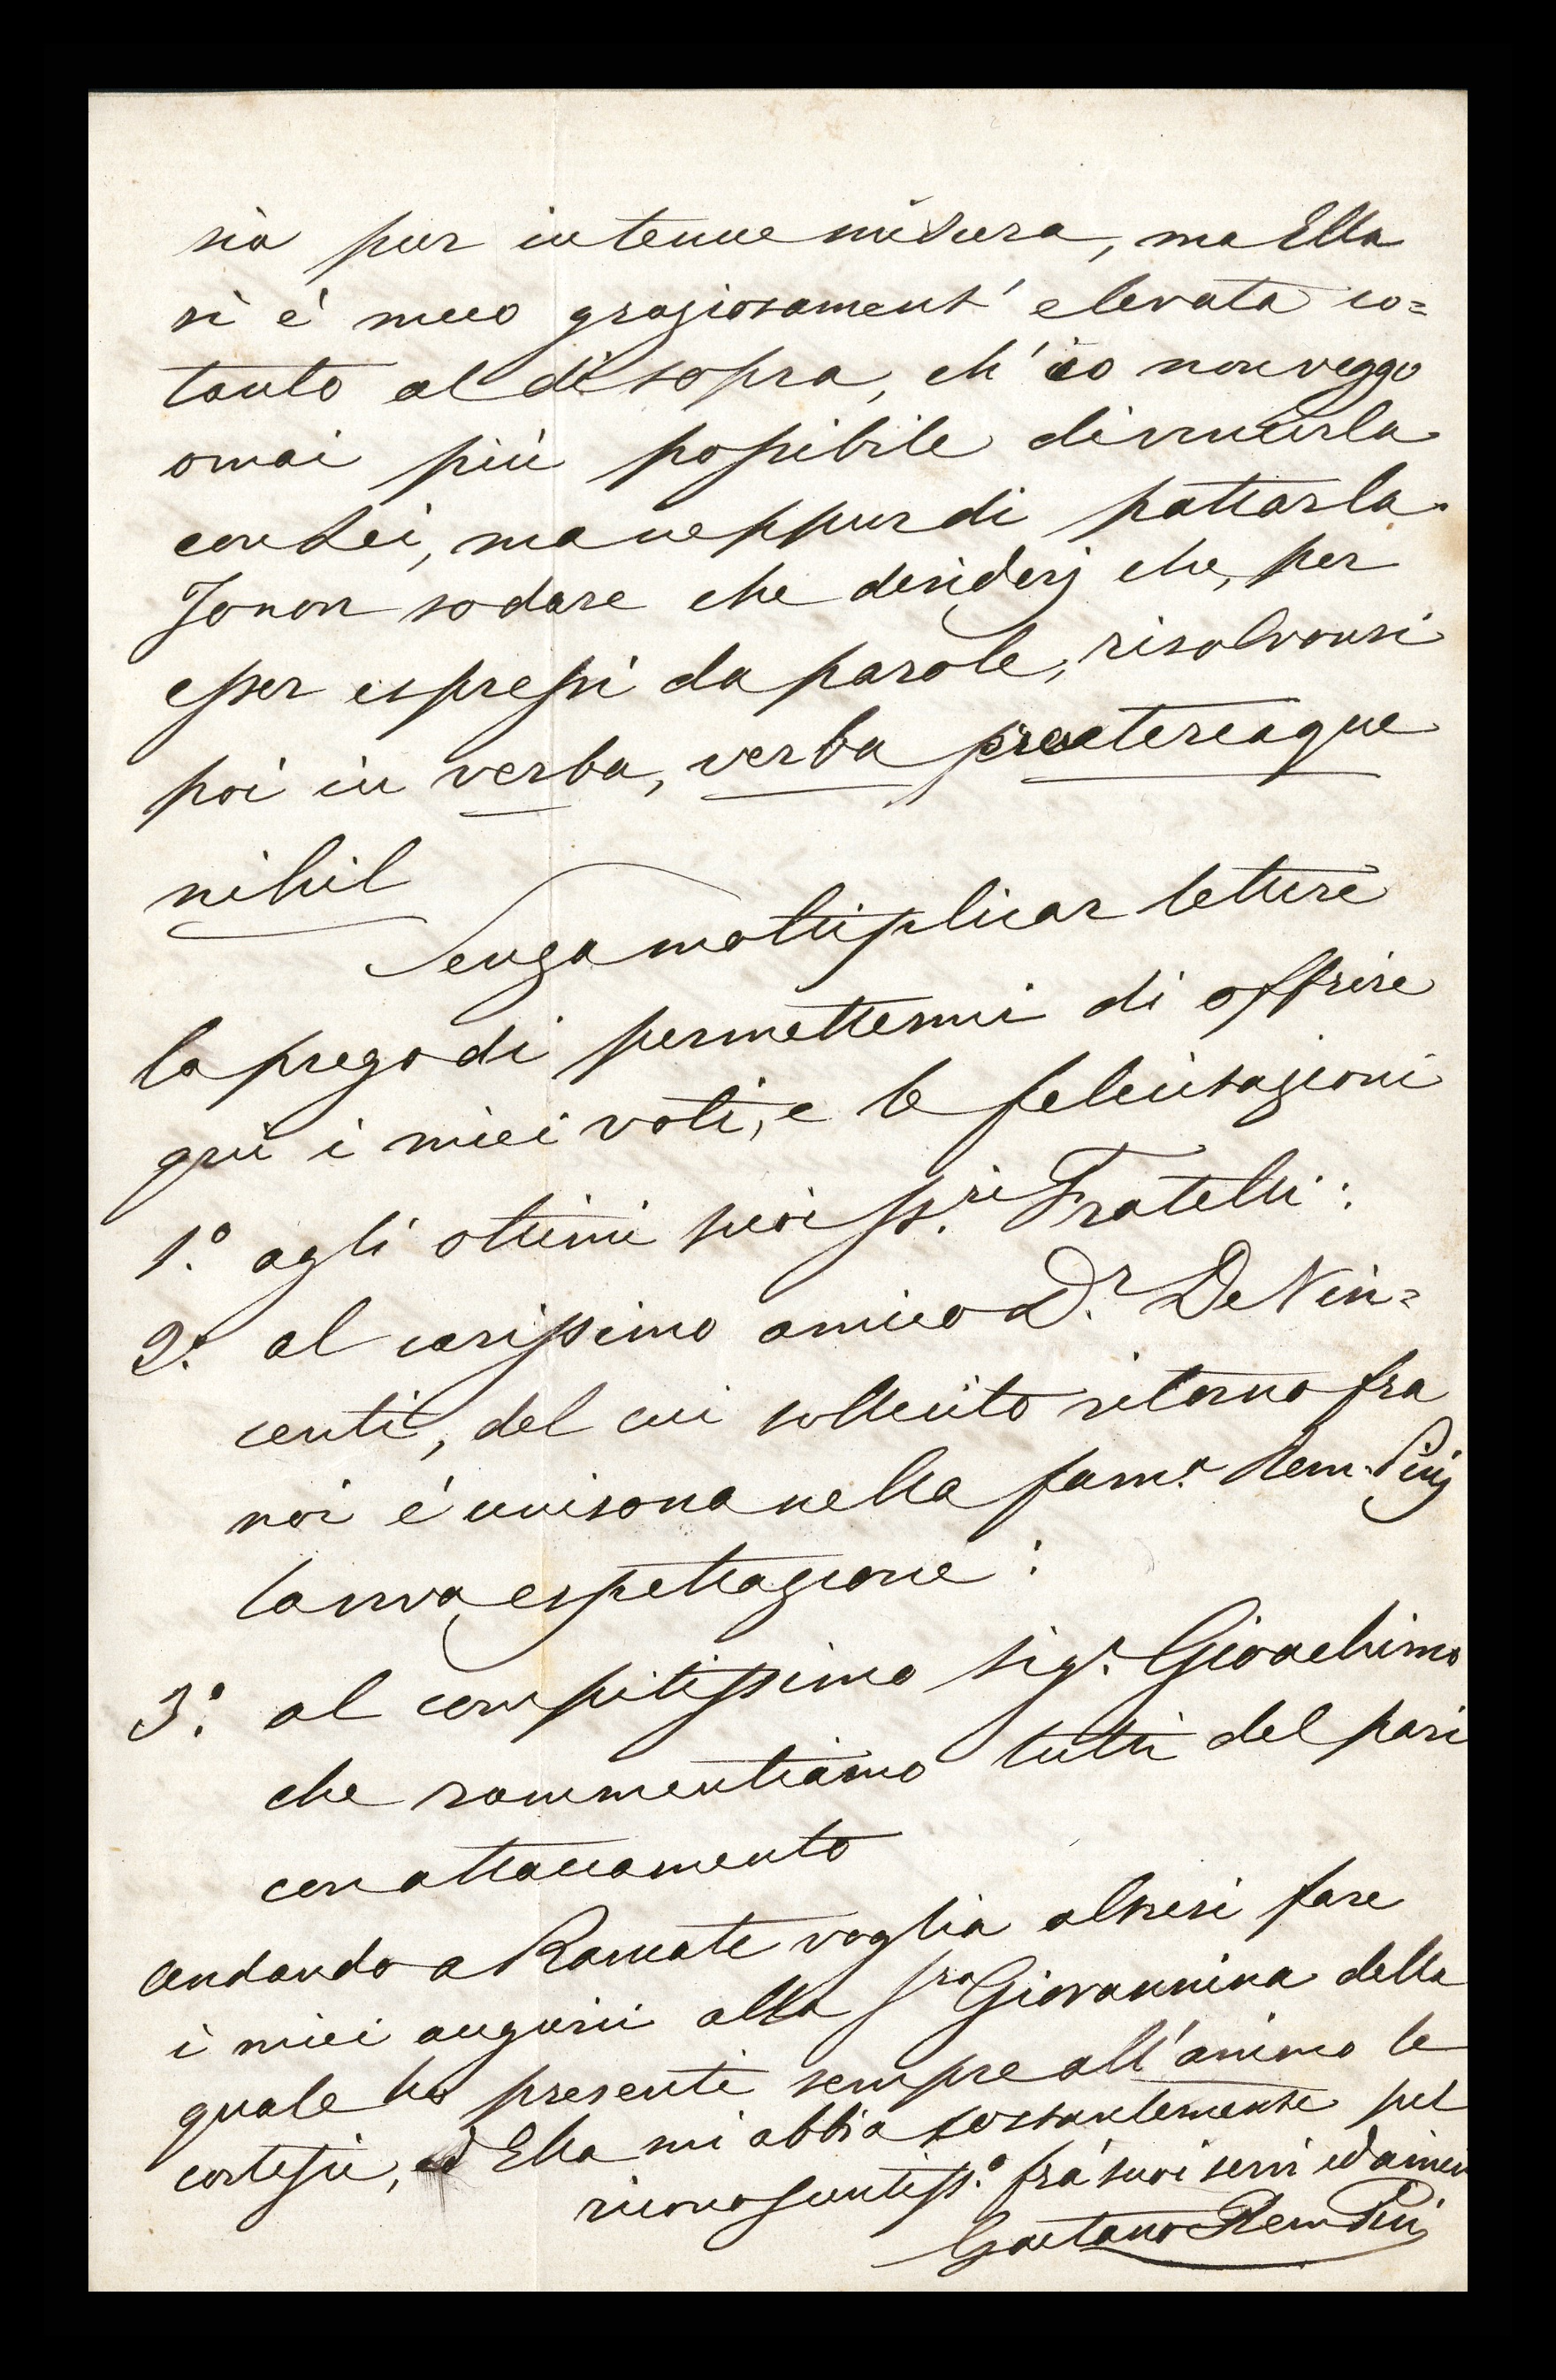 sia pur in tenue misura, ma Ella
si è meco graziosament' elevata co=
tanto al di sopra, ch' io non veggo
omai più possibile di vincerla
con Lei, ma neppur di pattarla.
Io non so dare che desiderj che, per
esser espressi da parole, risolvonsi
poi in verba, verba praetereaque
nihil
Senza moltiplicar lettere
la prego di permettermi di offrire
quì i miei voti, e le felicitazioni
1.° agli ottimi suoi SS.ri Fratelli:
2.° al carissimo amico D.r De Vin=
centi, del cui sollecito ritorno fra
noi è unisona nella fam.a Rem-Picij
la viva espettazione:
3.° al compitissimo sig.r Gioachimo
che rammentiamo tutti del pari
con attaccamento
Andando a Ramate voglia altresì fare
i miei augurii alla Sra Giovannina della
quale ho presenti sempre all'animo le
cortesie, ed Ella mi abbia costantemente pel
riconoscentiss.° frà suoi servi ed amici
Gaetano Rem Picij